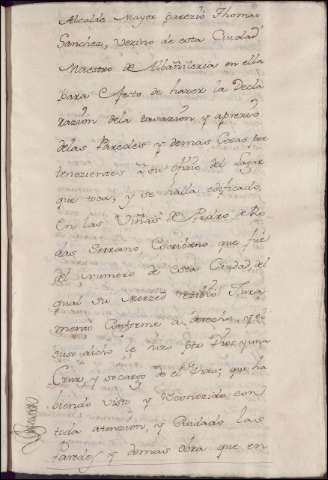 Alcalde Mayor parezio Thomas
Sanchez, Vezino de esta Ciudad
Maestro de Albañileria en ella
para efecto de hazer la Decla
razion dela tasazion, y aprezio
delas Paredes y demas Cosas per
tenezientes a su ofizio del lagar
que toca, y se halla edificado
en las Viñas de Pedro de Ro
das Serrano Escribano que fue
del numero de esta Ciudad, del
qual su merzed rezibio Jura
mento conforme a derecho, y el
suso dicho le hizo por Dios y una
Cruz, y so cargo de el Dixo; que ha
biendo visto y reconozido con
toda atenzion, y Cuidado las
Paredes y demas obra que en